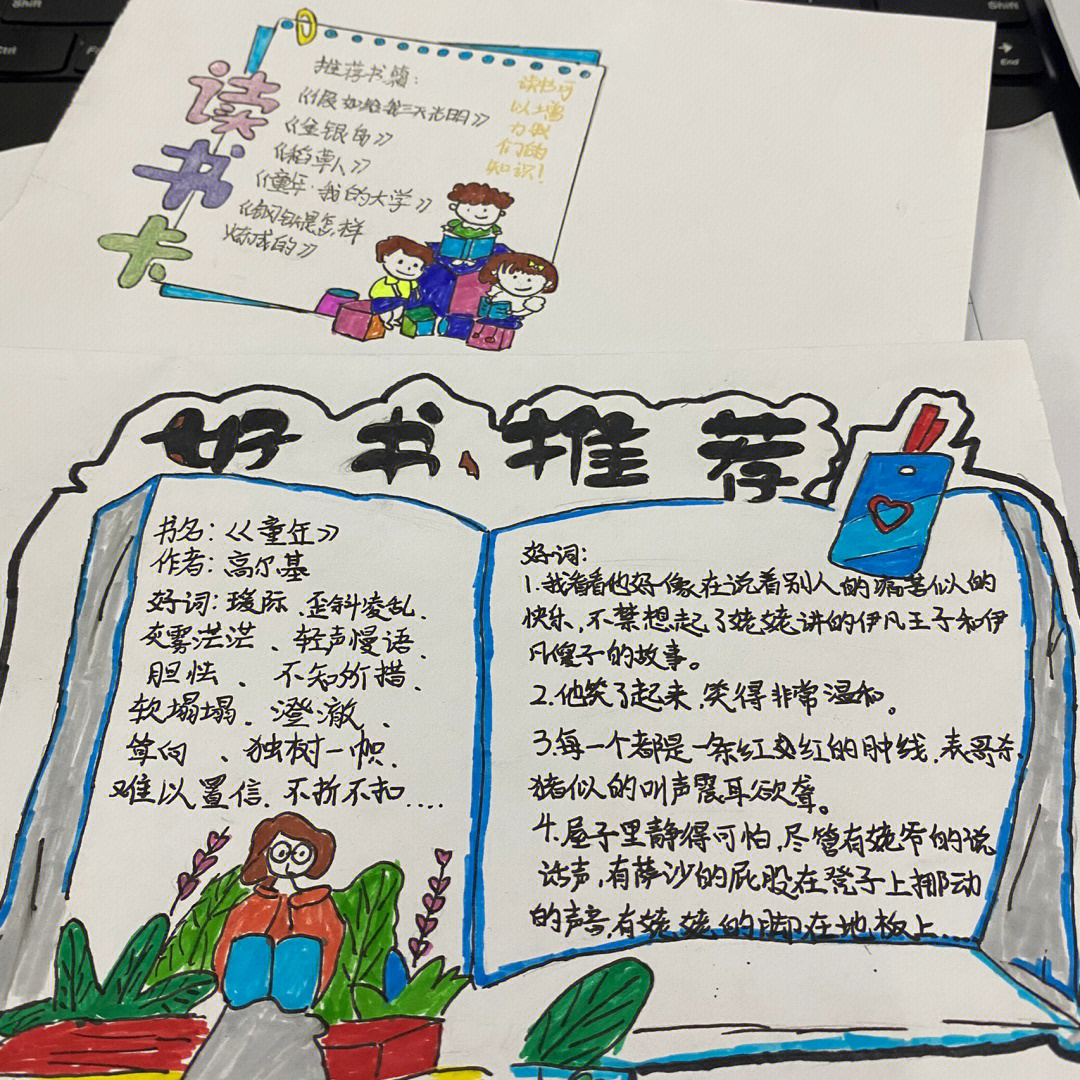 Shift
Ctrl
Shift
End
读书卡
推荐书籍:
《假如给我三天光明》
《金银岛》
《稻草人》
《童年·我的大学》
《钢铁是怎样
炼成的》
读书可
以增
力我
们的
知识!
好书推荐
书名:《童年》
作者:高尔基
好词:瑷际、歪斜凌乱、
灰雾茫茫、轻声慢语、
胆怯、不知所措、
软塌塌、澄澈、
单向、独树一帜、
难以置信、不折不扣....
好词:
1.我看看他好像在说着别人的痛苦似的
快乐,不禁想起了姥姥讲的伊凡王子和伊
凡傻子的故事。
2.他笑了起来,笑得非常温和。
3.每一个都是一条红红的肿线,表哥杀
猪似的叫声震耳欲聋。
4.屋子里静得可怕,尽管有姥爷的说
话声,有萨沙的屁股在凳子上挪动
的声音,有姥姥的脚在地板上....